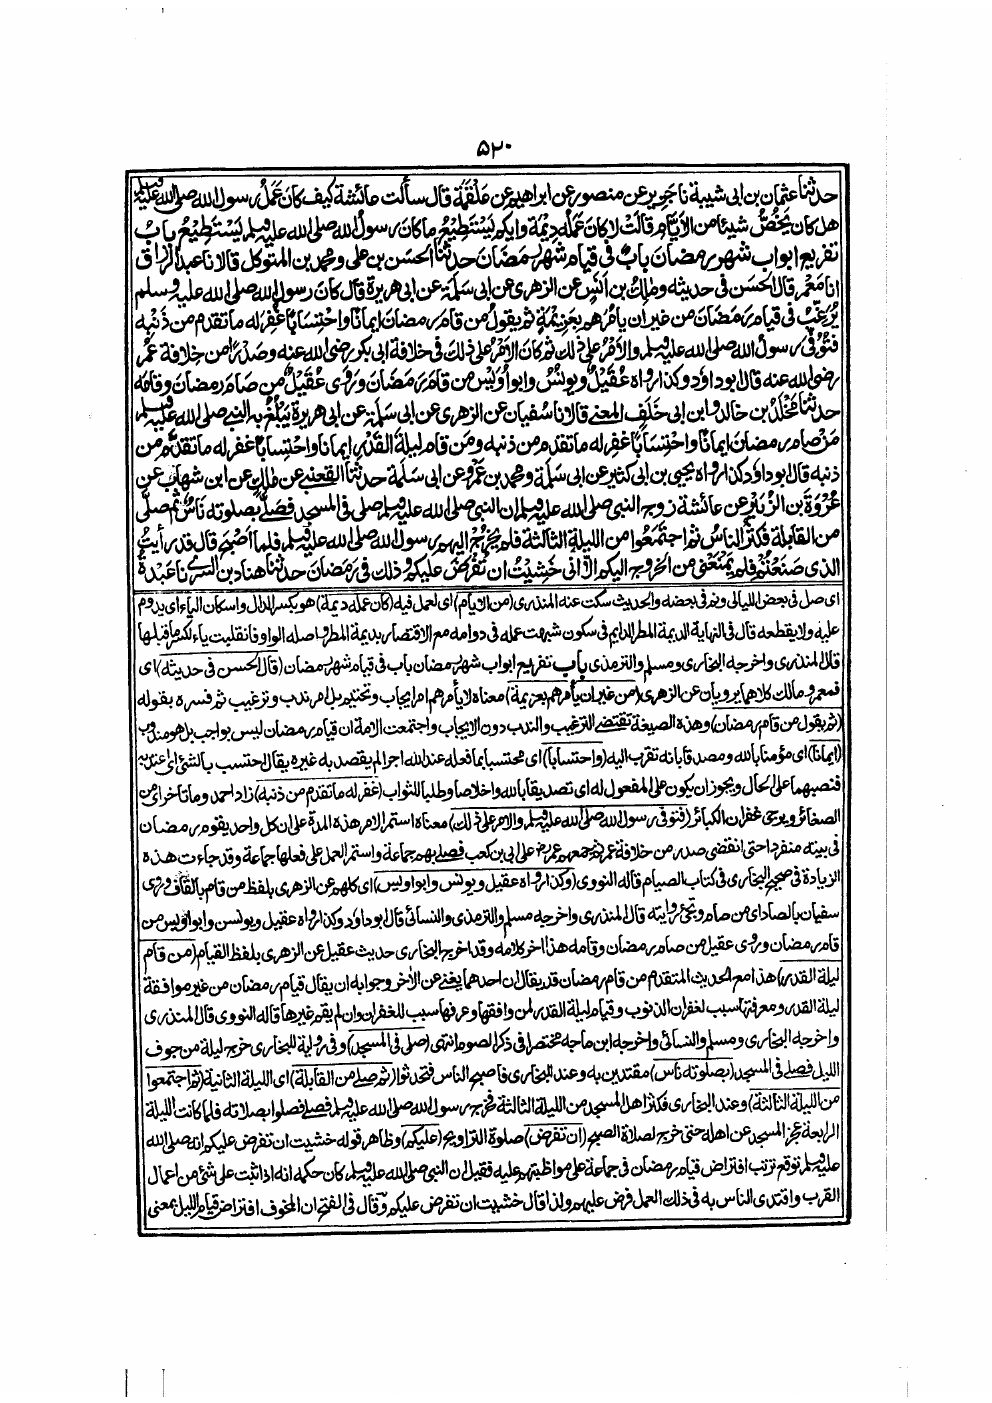 ۵۲۰
حدثنا عثمان بن ابى شيبة نا جرير عن منصور عن ابراهيم عن علقمة قال سألت عائشة كيف كان عمل رسول الله صلى الله عليه وسلم
هل كان يخص شيئا من الايام قالت لا كان عمله ديمة وايكم يستطيع ما كان رسول الله صلى الله عليه وسلم يستطيع باب
تفريع ابواب شهر رمضان باب فى قيام شهر رمضان حدثنا الحسن بن على ومحمد بن المتوكل قالا نا عبد الرزاق
انا معمر قال الحسن فى حديثه ومالك بن انس عن الزهرى عن ابى سلمة عن ابى هريرة قال كان رسول الله صلى الله عليه وسلم
يرغب فى قيام رمضان من غير ان يامرهم بعزيمة ثم يقول من قام رمضان ايمانا واحتسابا غفر له ما تقدم من ذنبه
فتوفى رسول الله صلى الله عليه وسلم والامر على ذلك ثم كان الامر على ذلك فى خلافة ابى بكر رضى الله عنه وصدرا من خلافة عمر
رضى الله عنه قال ابو داود وكذا رواه عقيل ويونس وابو أويس من قام رمضان وروى عقيل من صام رمضان وقامه
حدثنا مخلد بن خالد وابن ابى خلف المعنى قالا نا سفيان عن الزهرى عن ابى سلمة عن ابى هريرة يبلغ به النبى صلى الله عليه وسلم
من صام رمضان ايمانا واحتسابا غفر له ما تقدم من ذنبه ومن قام ليلة القدر ايمانا واحتسابا غفر له ما تقدم من
ذنبه قال ابو داود كذا رواه يحيى بن ابى كثير عن ابى سلمة ومحمد بن عمرو عن ابى سلمة حدثنا القعنبى عن مالك عن ابن شهاب عن
عروة بن الزبير عن عائشة زوج النبى صلى الله عليه وسلم ان النبى صلى الله عليه وسلم صلى فى المسجد فصلى بصلوته ناس ثم صلى
من القابلة فكثر الناس ثم اجتمعوا من الليلة الثالثة فلم يخرج اليهم رسول الله صلى الله عليه وسلم فلما اصبح قال قد رأيت
الذى صنعتم فلم يمنعنى من الخروج اليكم الا انى خشيت ان تفرض عليكم وذلك فى رمضان حدثنا هناد بن السرى نا عبدة
اى صل فى بعض الليالى ونم فى بعضه والحديث سكت عنه المنذرى (من الايام) اى لعمل فيه (كان عمله ديمة) هو بكسر الدال واسكان الياء اى يدوم
عليه ولا يقطعه قال فى النهاية الديمة المطر الدايم فى سكون شبهت عمله فى دوامه مع الاقتصار بديمة المطر واصله الواو فانقلبت ياء لكسر ما قبلها
قال المنذرى واخرجه البخارى ومسلم والترمذى باب تفريع ابواب شهر رمضان باب فى قيام شهر رمضان (قال الحسن فى حديثه) اى
فمعمر ومالك كلاهما يرويان عن الزهرى (من غير ان يأمرهم بعزيمة) معناه لا يأمرهم امر ايجاب وتحتيم بل امر ندب وترغيب ثم فسره بقوله
(ثم يقول من قام رمضان) وهذه الصيغة تقتضى الترغيب والندب دون الايجاب واجتمعت الامة ان قيام رمضان ليس بواجب بل هو مندوب
(ايمانا) اى مؤمنا بالله ومصدقا بانه تقرب اليه (واحتسابا) اى محتسبا بما فعله عند الله اجرا لم يقصد به غيره يقال احتسب بالشئ اى اعتد به
فنصبهما على الحال ويجوز ان يكون على المفعول له اى تصديقا بالله واخلاصا وطلبا للثواب (غفر له ما تقدم من ذنبه) زاد احمد وما تأخر اى من
الصغائر ويرجى غفران الكبائر (فتوفى رسول الله صلى الله عليه وسلم والامر على ذلك) معناه استمر الامر هذه المدة على ان كل واحد يقوم رمضان
فى بيته منفردا حتى انقضى صدر من خلافة عمر ثم جمعهم عمر رض على ابى بن كعب فصلى بهم جماعة واستمر العمل على فعلها جماعة وقد جاءت هذه
الزيادة فى صحيح البخارى فى كتاب الصيام قاله النووى (وكذا رواه عقيل ويونس وابو اويس) اى كلهم عن الزهرى بلفظ من قام بالقاف وروى
سفيان بالصاد اى من صام وتجئ روايته قال المنذرى واخرجه مسلم والترمذى والنسائى قال ابو داود وكذا رواه عقيل ويونس وابو اويس من
قام رمضان وروى عقيل من صام رمضان وقامه هذا اخر كلامه وقد اخرج البخارى حديث عقيل عن الزهرى بلفظ القيام (من قام
ليلة القدر) هذا مع الحديث المتقدم من قام رمضان قد يقال ان احدهما يغنى عن الآخر وجوابه ان يقال قيام رمضان من غير موافقة
ليلة القدر ومعرفتها سبب لغفران الذنوب وقيام ليلة القدر لمن وافقها وعرفها سبب للغفران وان لم يقم غيرها قاله النووى قال المنذرى
واخرجه البخارى ومسلم والنسائى واخرجه ابن ماجه مختصرا فى ذكر الصوم انتهى (صلى فى المسجد) وفى رواية للبخارى خرج ليلة من جوف
الليل فصلى فى المسجد (بصلوته ناس) مقتدين به وعند البخارى فاصبح الناس فتحدثوا (ثم صلى من القابلة) اى الليلة الثانية (ثم اجتمعوا
من الليلة الثالثة) وعند البخارى فكثر اهل المسجد من الليلة الثالثة فخرج رسول الله صلى الله عليه وسلم فصلى فصلوا بصلاته فلما كانت الليلة
الرابعة عجز المسجد عن اهله حتى خرج لصلاة الصبح (ان تفرض) صلوة التراويح (عليكم) وظاهر قوله خشيت ان تفرض عليكم انه صلى الله
عليه وسلم توقع ترتب افتراض قيام رمضان فى جماعة على مواظبتهم عليه فقيل ان النبى صلى الله عليه وسلم كان حكمه انه اذا ثبت على شئ من اعمال
القرب واقتدى الناس به فى ذلك العمل فرض عليهم ولذا قال خشيت ان تفرض عليكم وقال فى الفتح ان المخوف افتراض قيام الليل بمعنى